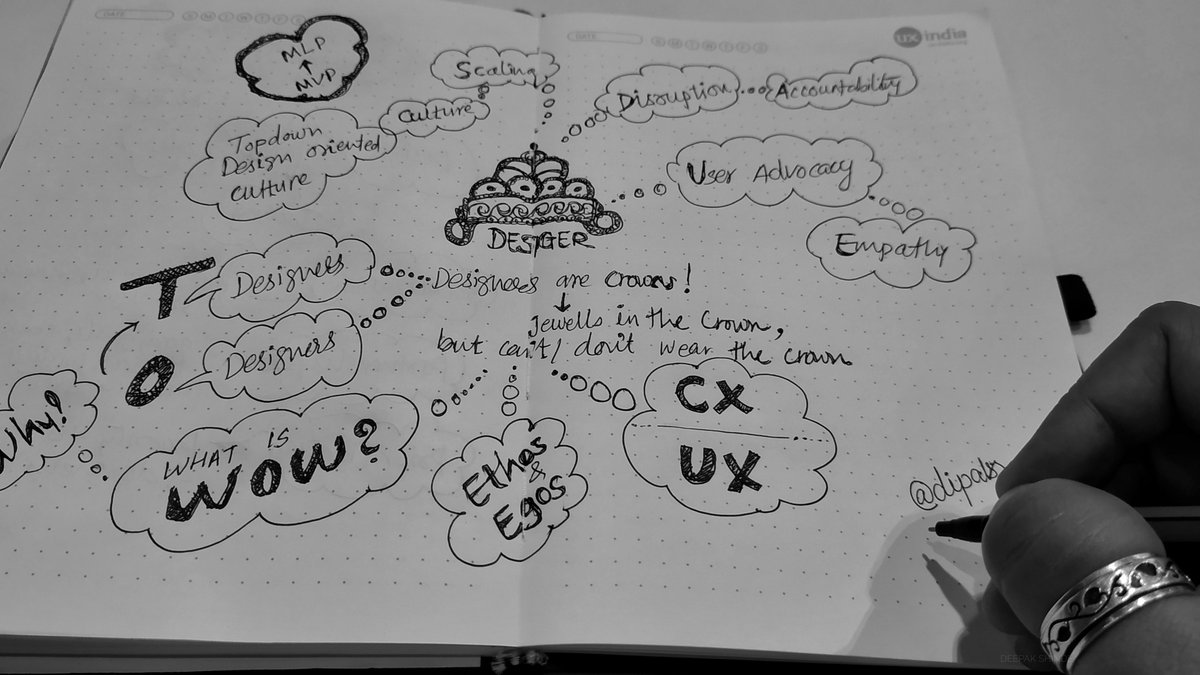 DATE
S M T W T F S
DATE
S M T W T F S
ux india
MLP
MVP
Scaling
Culture
Topdown
Design oriented
culture
Disruption
Accountability
User Advocacy
Empathy
DESIGER
T
Designers
O
Designers
Designers are crowns!
Jewells in the crown,
but can't/don't wear the crown
Why?
WHAT IS
WOW?
Ethos
&
Egos
CX
UX